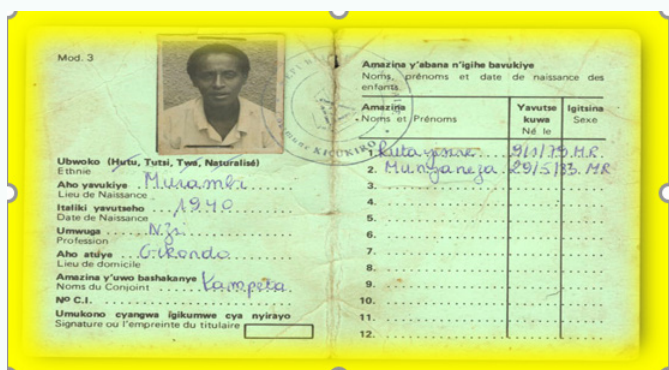 Mod. 3
Ubwoko (Hutu, Tutsi, Twa, Naturalisé)
Ethnie
Aho yavukiye Murambi
Lieu de Naissance
Italiki yavutseho 1940
Date de Naissance
Umwuga
Profession
Aho atuye Gikondo
Lieu de domicile
Amazina y'uwo bashakanye Kampeta
Noms du Conjoint
Nº C.I.
Umukono cyangwa igikumwe cya nyirayo
Signature ou l'empreinte du titulaire
KICUKIRO
Amazina y'abana n'igihe bavukiye
Noms, prénoms et date de naissance des
enfants.
Amazina Yavutse Igitsina
Noms et Prénoms kuwa Sexe
Né le
1. Rutayisire 9/1/79 MR
2. Munyaneza 29/5/83. MR
3.
4.
5.
6.
7.
8.
9.
10.
11.
12.